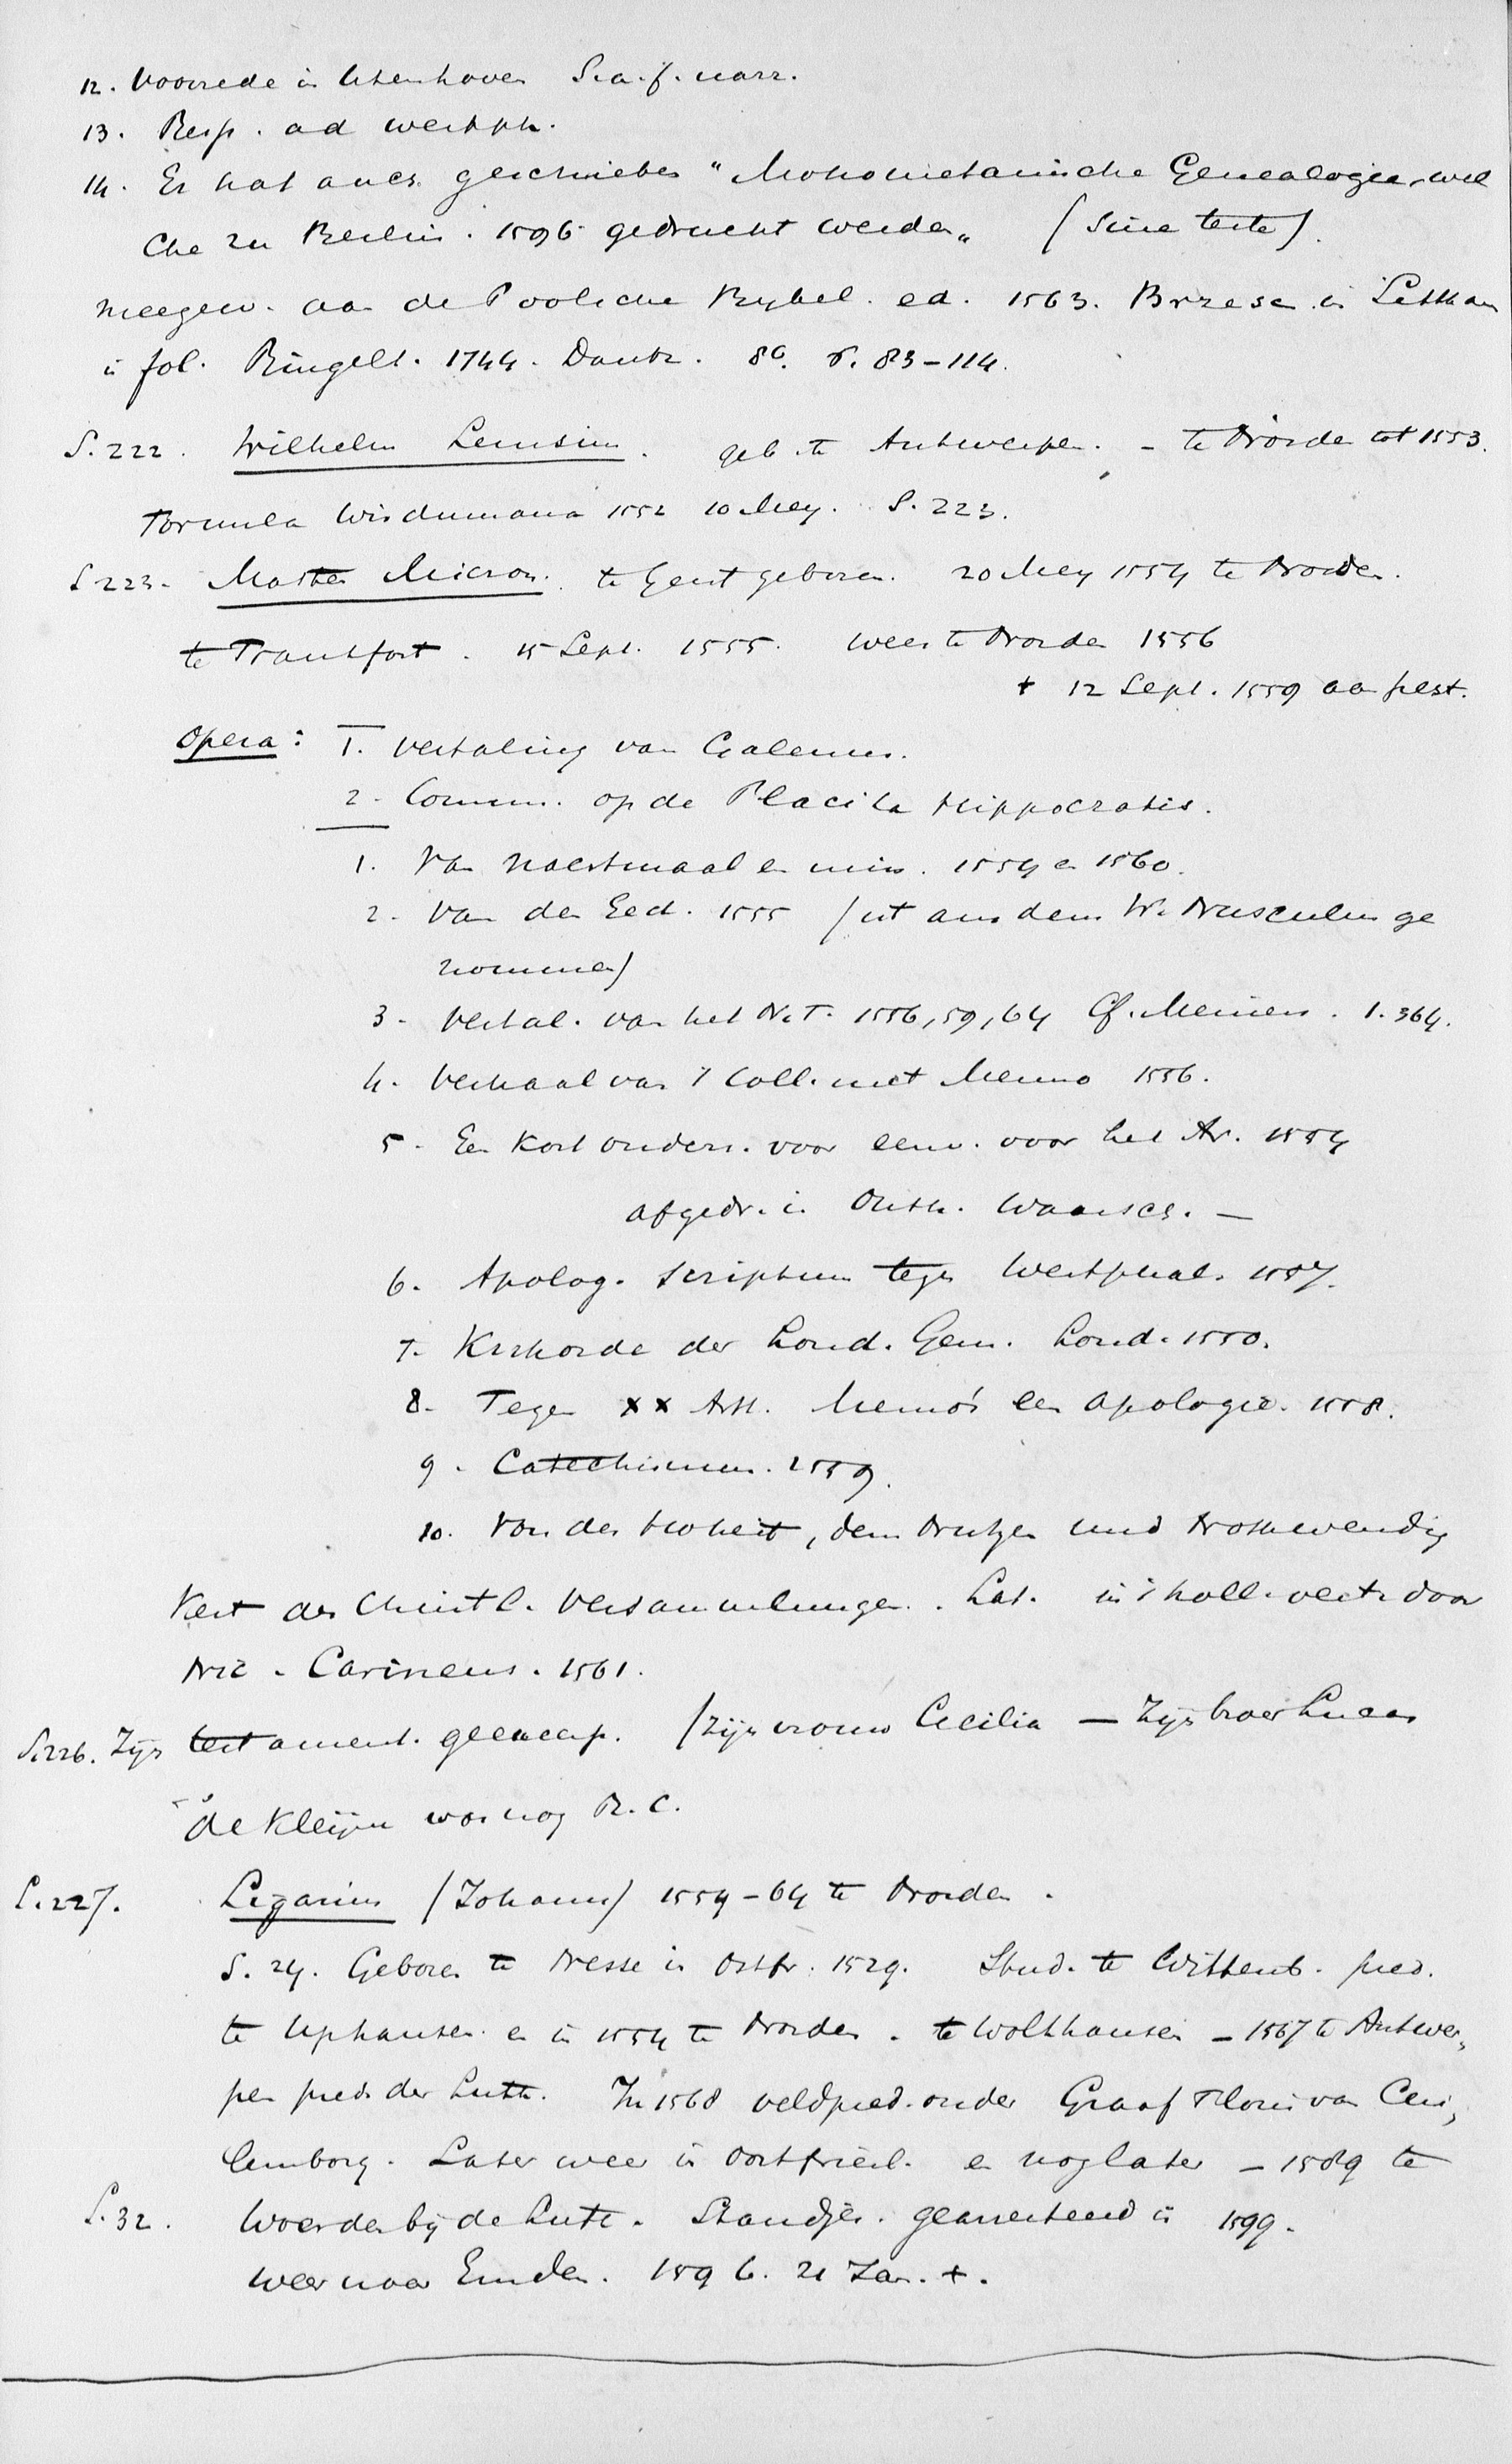 12. Voorrede in Utenhoven S.a.f. narr.
13. Resp. ad Westph.
14. Er hat auch geschrieben "Mohometanische Genealogie, wel
che zu Berlin. 1596 gedruckt werden" (sine teste).
Meegew. aan de Poolsche Bybel. ed. 1563. Brzesc in Litthau
in fol. Ringelt. 1744. Dantz. 8o. S. 83-114.
S. 222. Wilhelm Lemsius. geb. te Antwerpen. - te Norden tot 1553.
Formula Wisdumana 1552 10 Mey. S. 223.
S 223. Marten Micron. te Gent geboren. 20 Mey 1554 te Norden.
te Francfort. 15 Sept. 1555. weer te Norden 1556
† 12 Sept. 1559 aan pest.
Opera: 1. Vertaling van Galenus.
2. Comm. op de Placita Hippocratis.
1. Van Nachtmaal en mis. 1554 en 1560.
2. Van den Eed. 1555 (ist aus dem W. Musculus ge
nommen)
3. Vertal. van het N.T. 1556, 59, 64 Cf. Meiners. 1. 364.
4. Verhaal van 't Coll. met Menno 1556.
5. Een Kort onderr. voor eenv. voor het Av. 1554
afgedr. in Onsch. Waarsch. —
6. Apolog. Scriptum tegen Westphal. 1557.
7. Kerkorde der Lond. Gem. Lond. 1550.
8. Tegen XX Art. Menno's een apologie. 1558.
9. Catechismus. 1559.
10. Von der Hoheit, dem Nutzen und Nothwendig
Keit der Christl. Versammlungen. Lat. in 't holl. vert. door
Nic. Carineus. 1561.
S. 226. Zijn testament. geencerp. (zijn vrouw Cecilia — Zijn broer Lucas
de Kleijn was nog R.C.
S. 227. Ligarius (Johann) 1554-64 te Norden.
S. 24. Geboren te Nesse in Ostfr. 1529. Stud. te Wittenb. pred.
te Uphausen en in 1554 te Norden. te Wolthausen - 1567 te Antwer„
pen pred. der Luth. In 1568 veldpred. onder Graaf Floris van Cui„
lemborg. Later weer in Oostfriesl. en nog later - 1589 te
S. 32. Woerden bij de Luth. Standjes. gearresteerd in 1599.
Weer naar Emden. 1596. 21 Jan. †.